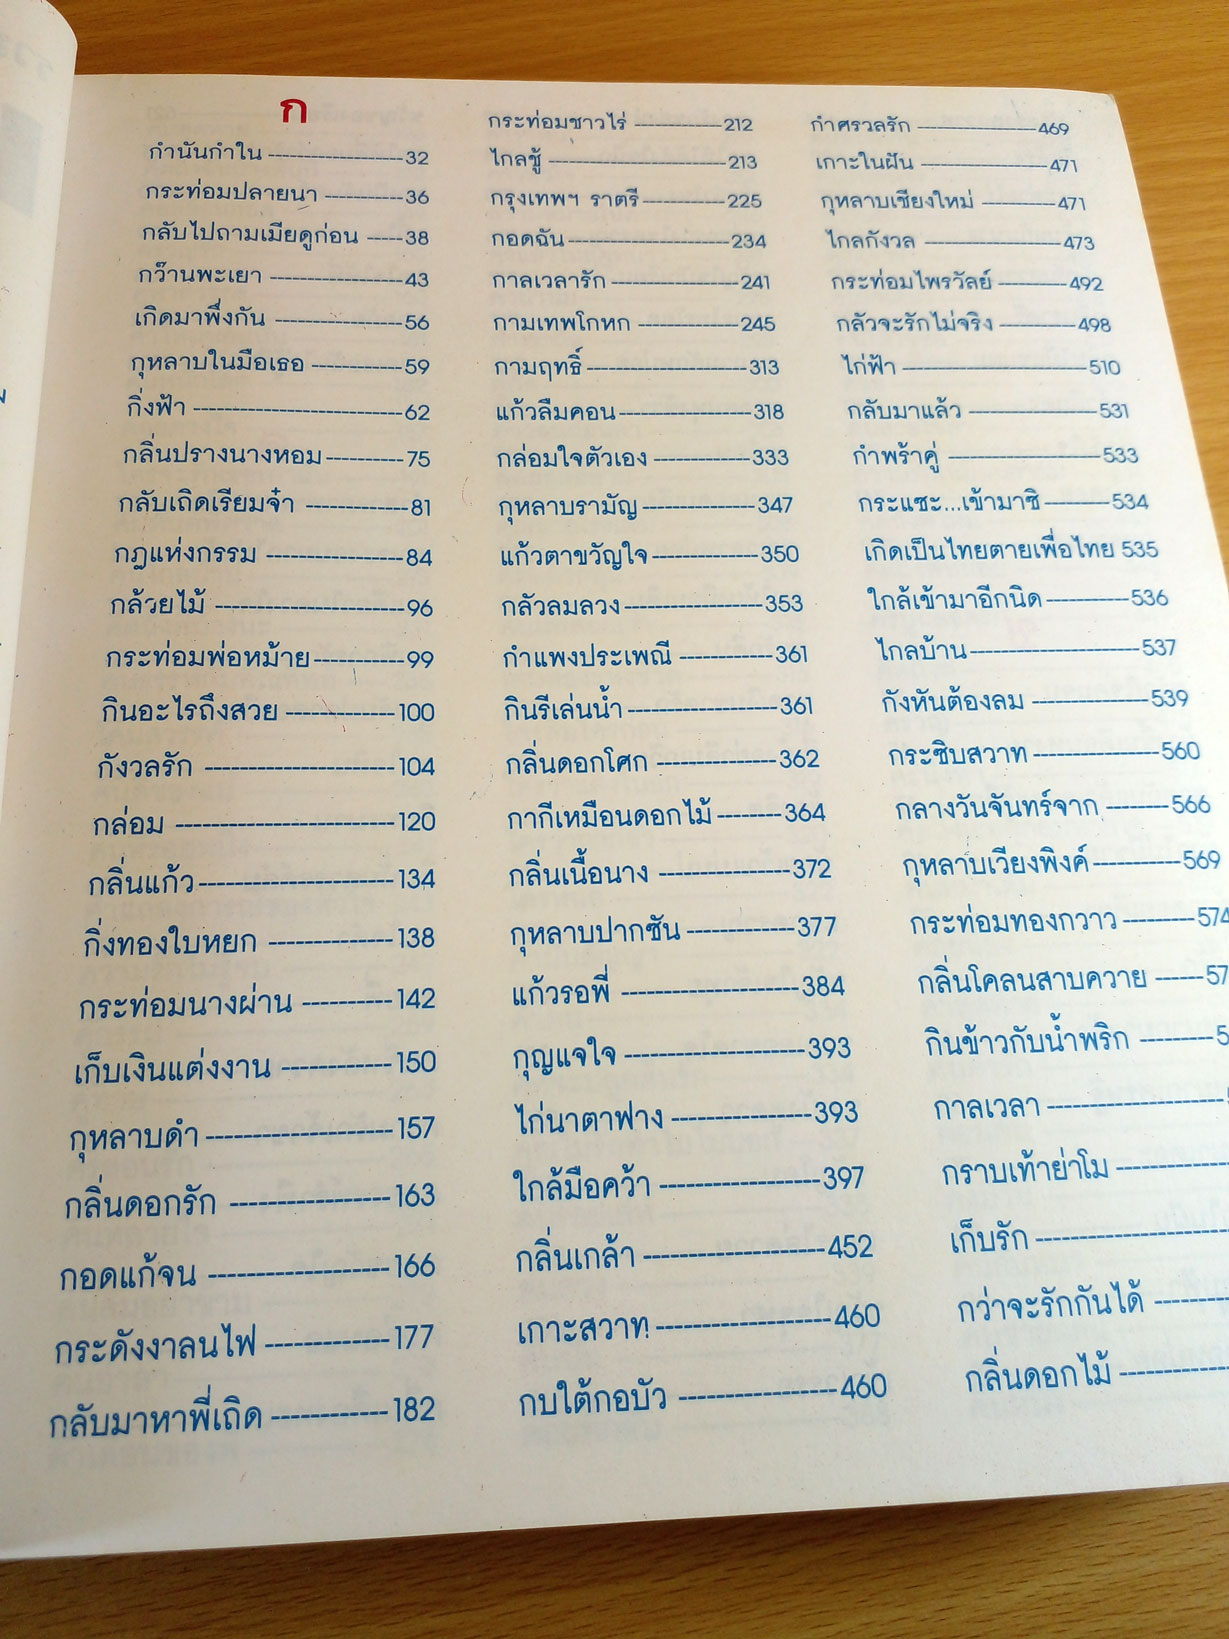 ก
กำนันกำใน -------------------32
กระท่อมปลายนา -----------36
กลับไปถามเมียดูก่อน -----38
กว๊านพะเยา ------------------43
เกิดมาพึ่งกัน -----------------56
กุหลาบในมือเธอ ------------59
กิ่งฟ้า ---------------------------62
กลิ่นปรางนางหอม----------75
กลับเถิดเรียมจ๋า -------------81
กฎแห่งกรรม -----------------84
กล้วยไม้ -----------------------96
กระท่อมพ่อหม้าย-----------99
กินอะไรถึงสวย -------------100
กังวลรัก ----------------------104
กล่อม -------------------------120
กลิ่นแก้ว----------------------134
กิ่งทองใบหยก --------------138
กระท่อมนางผ่าน ----------142
เก็บเงินแต่งงาน ------------150
กุหลาบดำ--------------------157
กลิ่นดอกรัก -----------------163
กอดแก้จน -------------------166
กระดังงาลนไฟ-------------177
กลับมาหาพี่เถิด ------------182
กระท่อมชาวไร่ ------------212
ไกลชู้ ------------------------213
กรุงเทพฯ ราตรี-----------225
กอดฉัน----------------------234
กาลเวลารัก-----------------241
กามเทพโกหก --------------245
กามฤทธิ์---------------------313
แก้วลืมคอน-----------------318
กล่อมใจตัวเอง ------------333
กุหลาบรามัญ---------------347
แก้วตาขวัญใจ--------------350
กลัวลมลวง-----------------353
กำแพงประเพณี ------------361
กินรีเล่นน้ำ------------------361
กลิ่นดอกโศก ---------------362
กากีเหมือนดอกไม้--------364
กลิ่นเนื้อนาง ---------------372
กุหลาบปากซัน-------------377
แก้วรอพี่ ---------------------384
กุญแจใจ ---------------------393
ไก่นาตาฟาง ----------------393
ใกล้มือคว้า ------------------397
กลิ่นเกล้า--------------------452
เกาะสวาท-------------------460
กบใต้กอบัว -----------------460
กำศรวลรัก -----------------469
เกาะในฝัน ------------------471
กุหลาบเชียงใหม่ -----------471
ไกลกังวล -------------------473
กระท่อมไพรวัลย์ ----------492
กลัวจะรักไม่จริง -----------498
ไก่ฟ้า -------------------------510
กลับมาแล้ว -----------------531
กำพร้าคู่ ---------------------533
กระแซะ...เข้ามาซิ---------534
เกิดเป็นไทยตายเพื่อไทย 535
ใกล้เข้ามาอีกนิด-----------536
ไกลบ้าน----------------------537
กังหันต้องลม ---------------539
กระซิบสวาท----------------560
กลางวันจันทร์จาก --------566
กุหลาบเวียงพิงค์-----------569
กระท่อมทองกวาว ---------574
กลิ่นโคลนสาบควาย ------57
กินข้าวกับน้ำพริก ---------5
กาลเวลา --------------------
กราบเท้าย่าโม -------------
เก็บรัก----------------------
กว่าจะรักกันได้ -----------
กลิ่นดอกไม้ ---------------